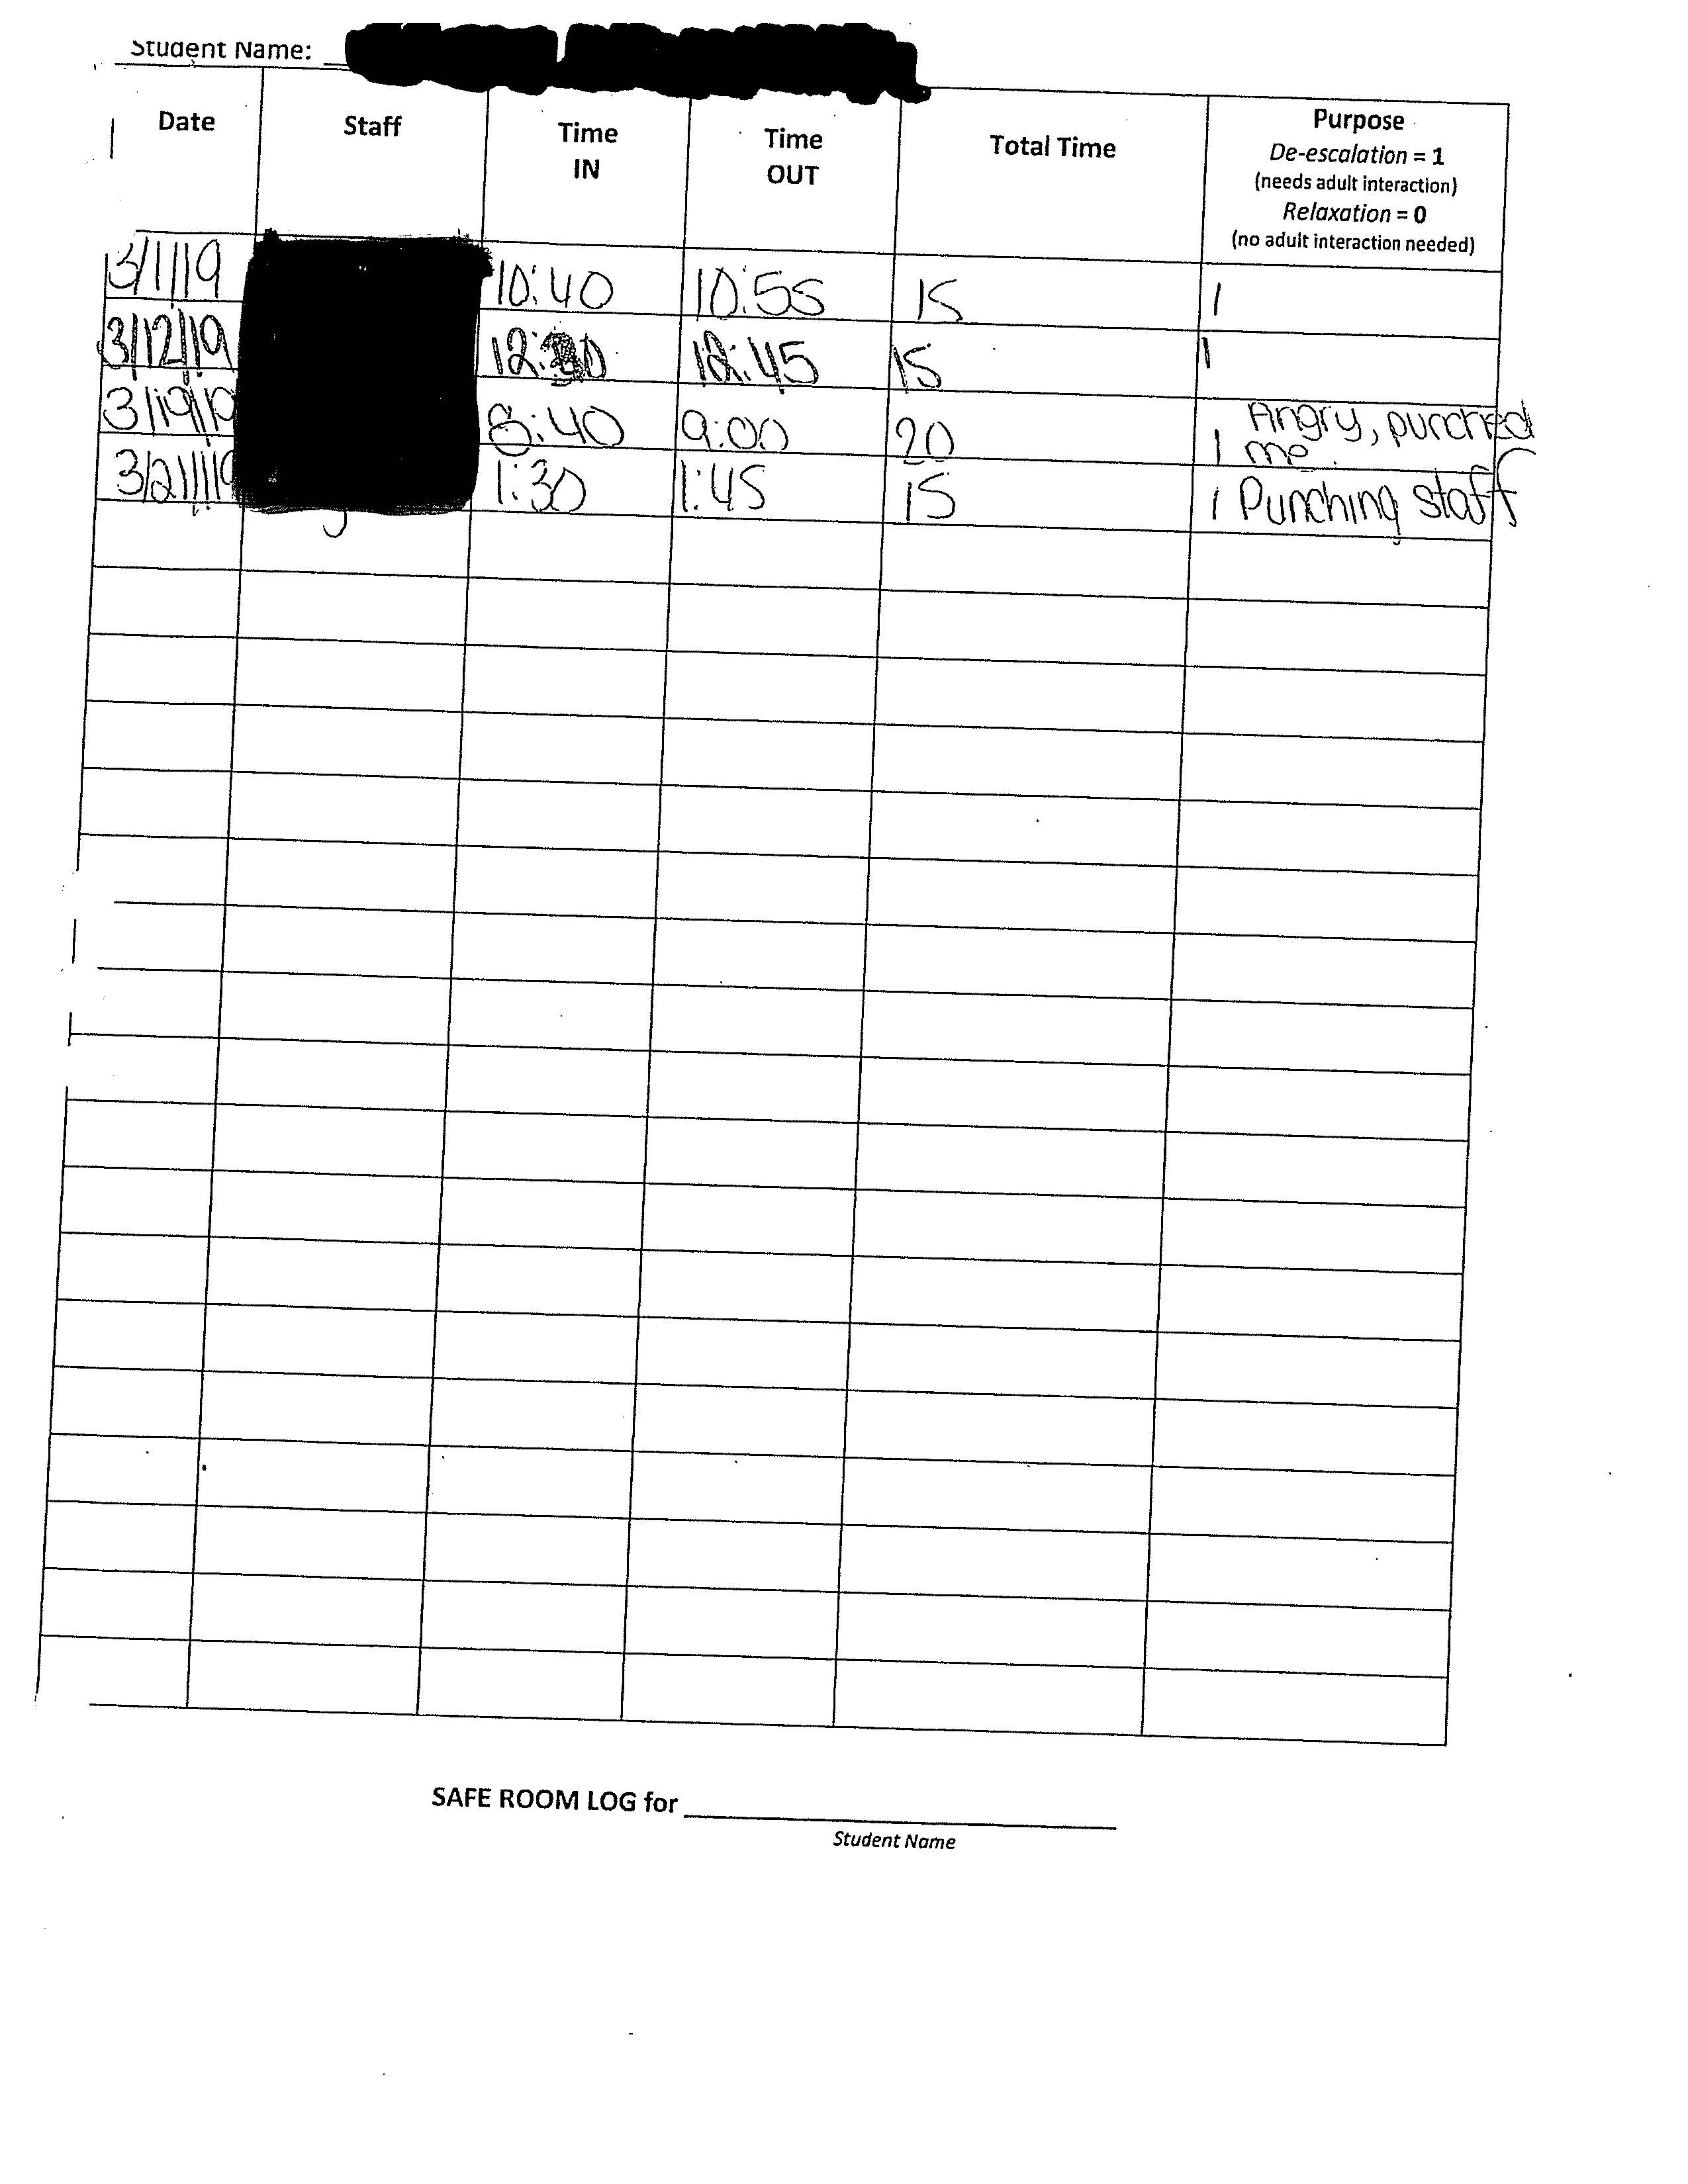 Student Name:
Date Staff Time IN Time OUT Total Time Purpose
De-escalation = 1
(needs adult interaction)
Relaxation = 0
(no adult interaction needed)
3/1/19 10:40 10:55 15 1
3/12/19 12:30 12:45 15 1
3/19/19 8:40 9:00 20 1 Angry, punched me.
3/21/19 1:30 1:45 15 1 Punching staff
SAFE ROOM LOG for
Student Name